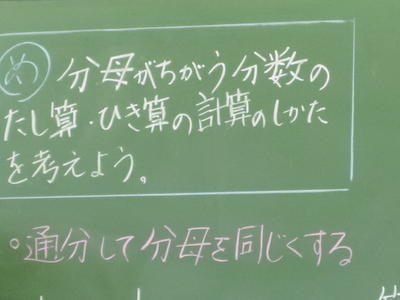 め 分母がちがう分数の
たし算・ひき算の計算のしかた
を考えよう。
○通分して分母を同じくする